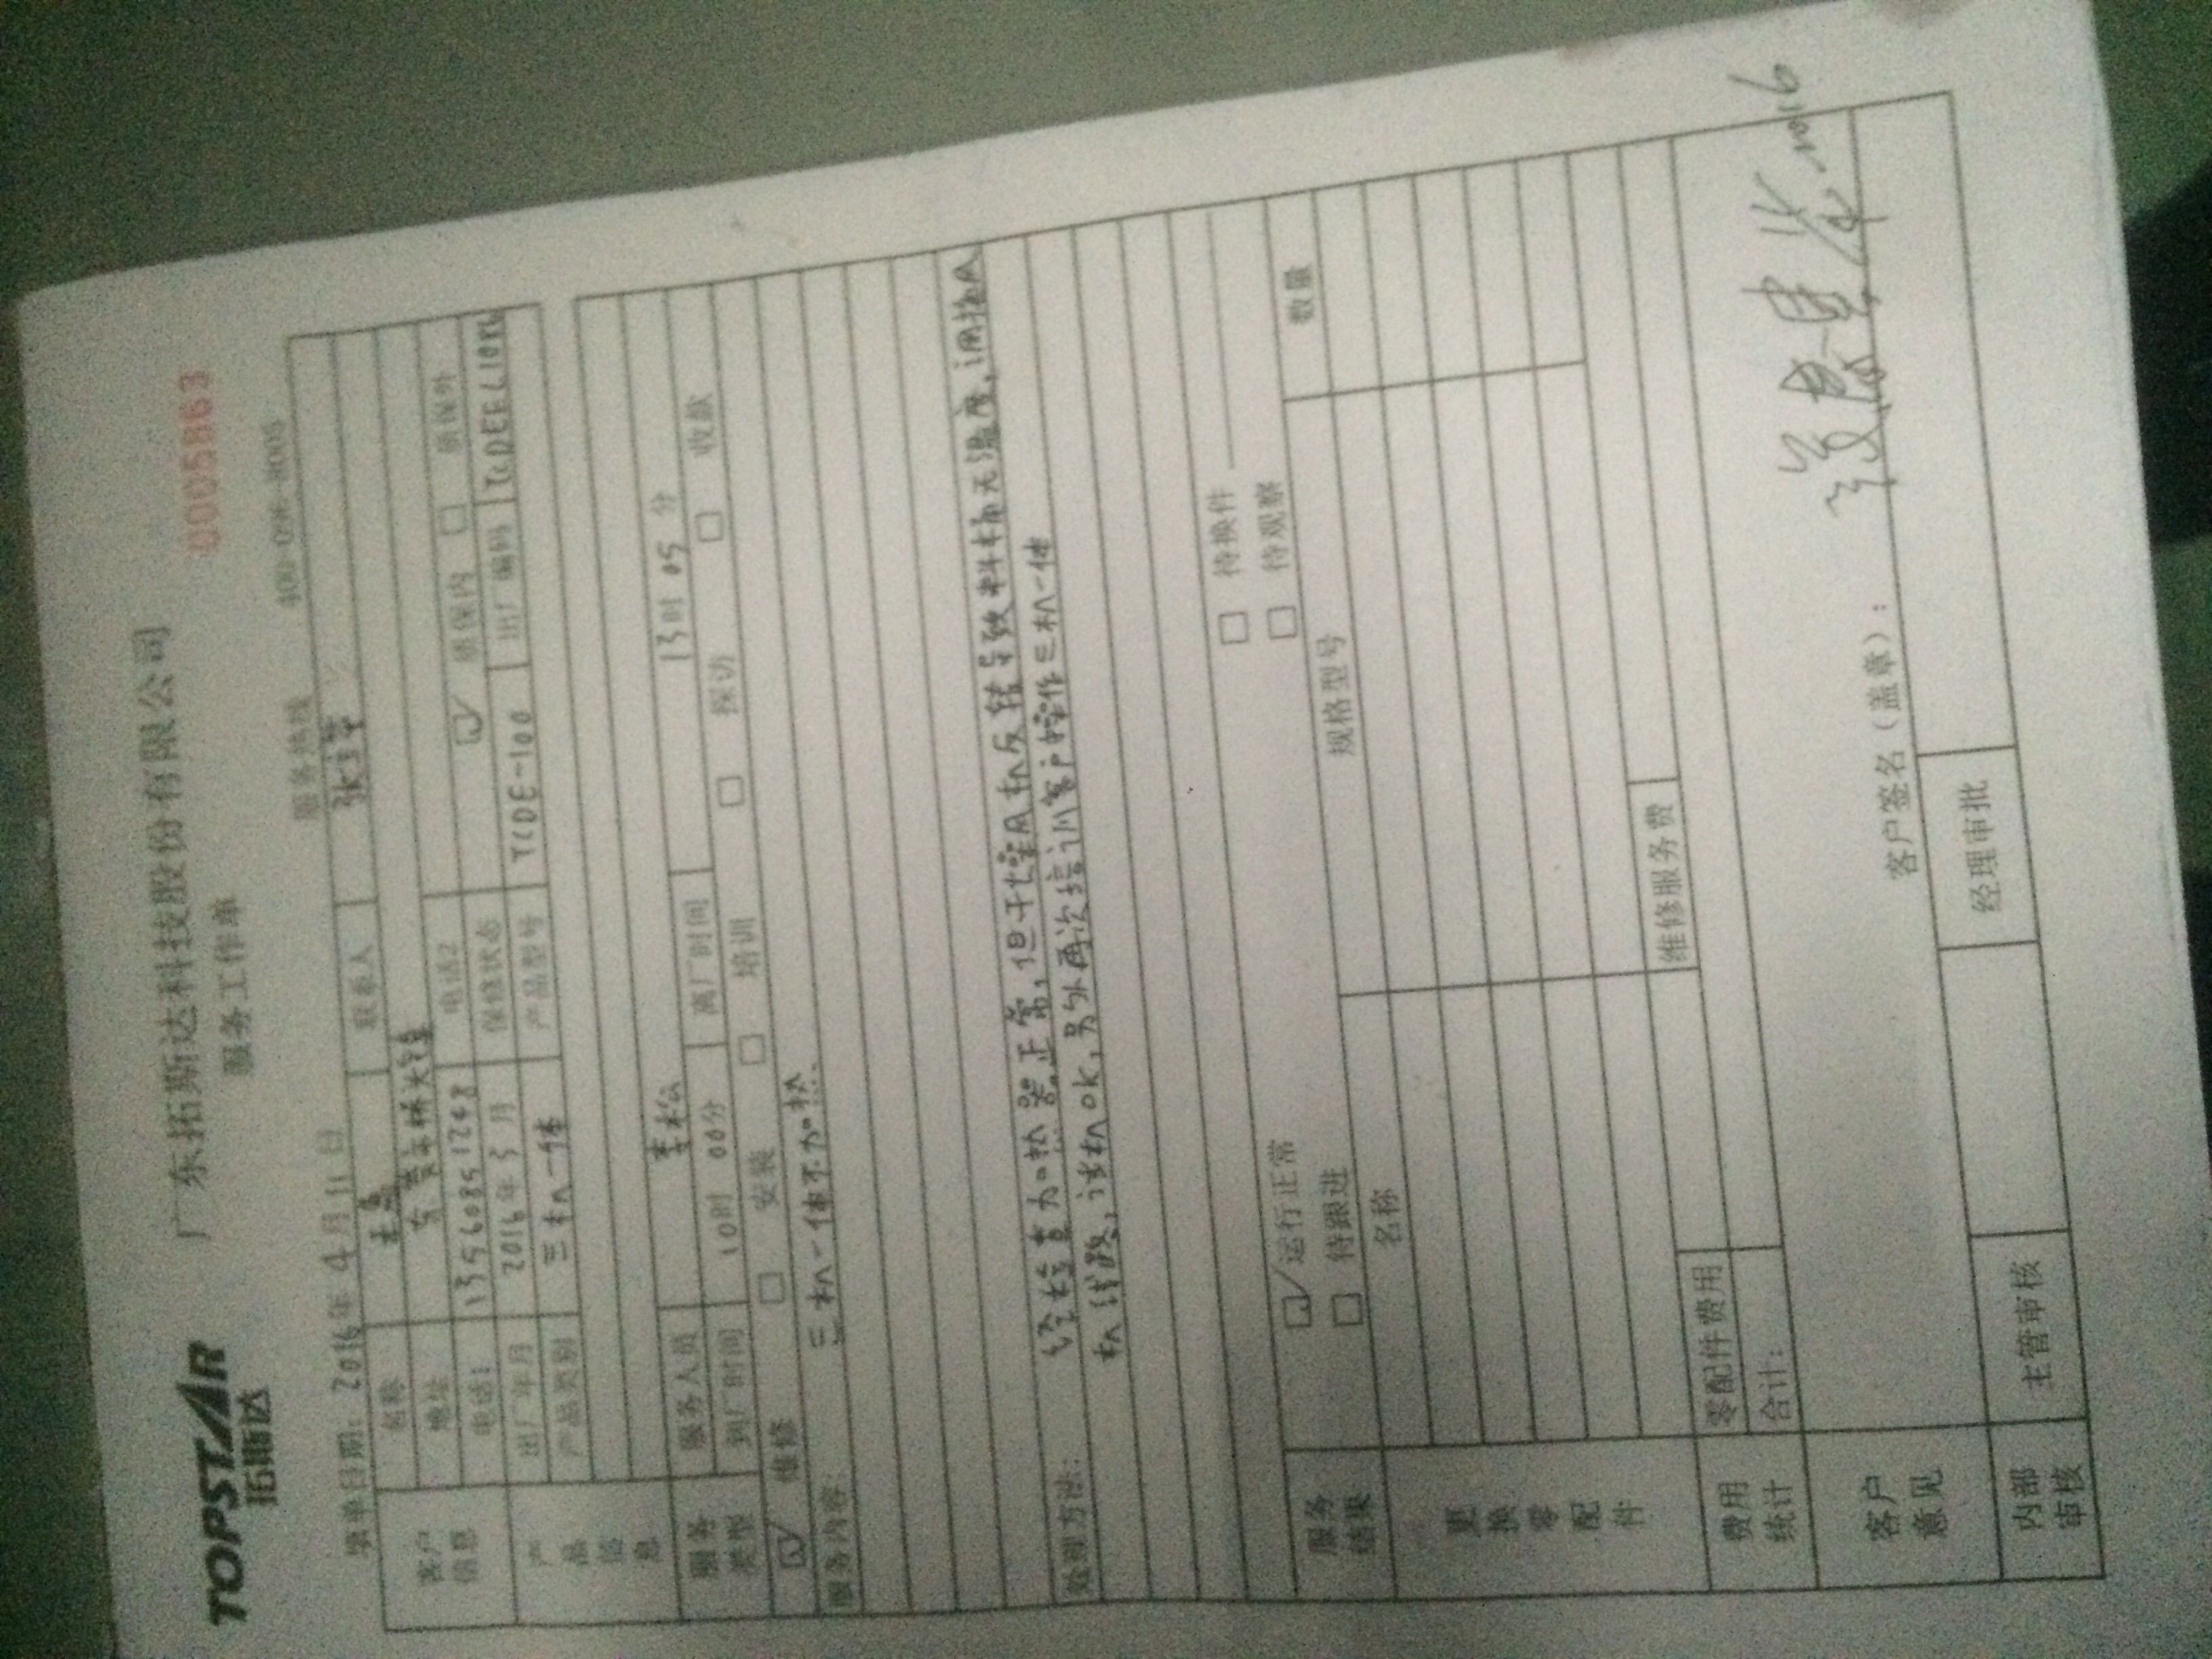 TOPSTAR
拓斯达
广东拓斯达科技股份有限公司
服务工作单
0005863
填单日期: 2016年4月11日
服务热线 400-096-8005
客户信息
名称
联系人
地址
电话1 13560851248
电话2
产品信息
出厂年月 2016年3月
保修状态 ☑ 质保内 ☐ 质保外
产品类别 三机一体
产品型号 TCDE-100
出厂编码
服务类型
服务人员 李松
到厂时间 10时00分
离厂时间 13时05分
☑ 维修 ☐ 安装 ☐ 培训 ☐ 探访 ☐ 收款
服务内容: 三机一体不加热.
处理方法: 经检查加热器正常,但干燥风机反转导致料桶无温度,调换风
机线路,试机OK,另外再次培训客户操作三机一体
服务结果
☑ 运行正常 ☐ 待换件
☐ 待跟进 ☐ 待观察
更换零配件
名称 规格型号 数量
费用统计
零配件费用 维修服务费
合计:
客户意见
客户签名(盖章):
内部审核
主管审核 经理审批